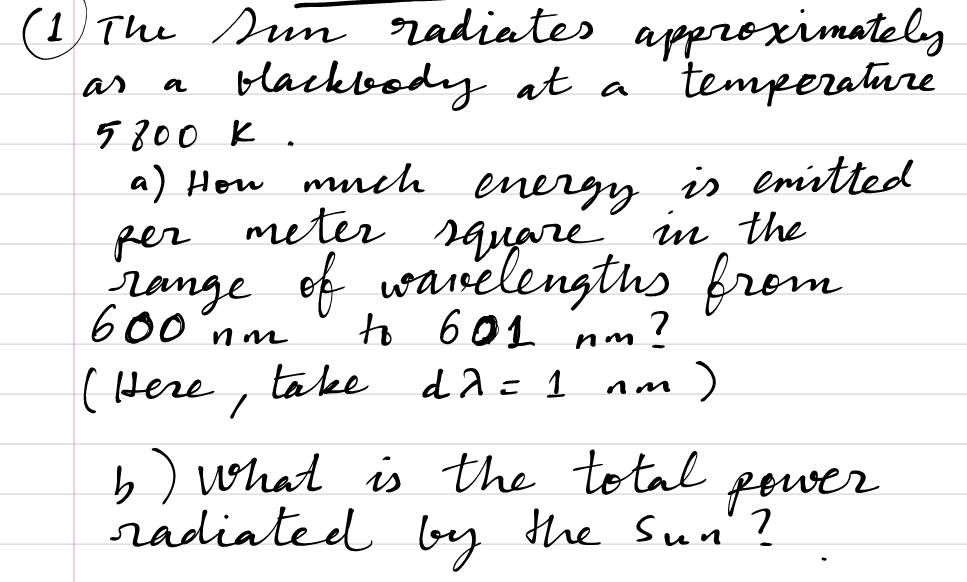 (1) The Sun radiates approximately
as a blackbody at a temperature
5800 K .
a) How much energy is emitted
per meter square in the
range of wavelengths from
600 nm to 601 nm?
(Here, take dλ = 1 nm)
b) What is the total power
radiated by the Sun?